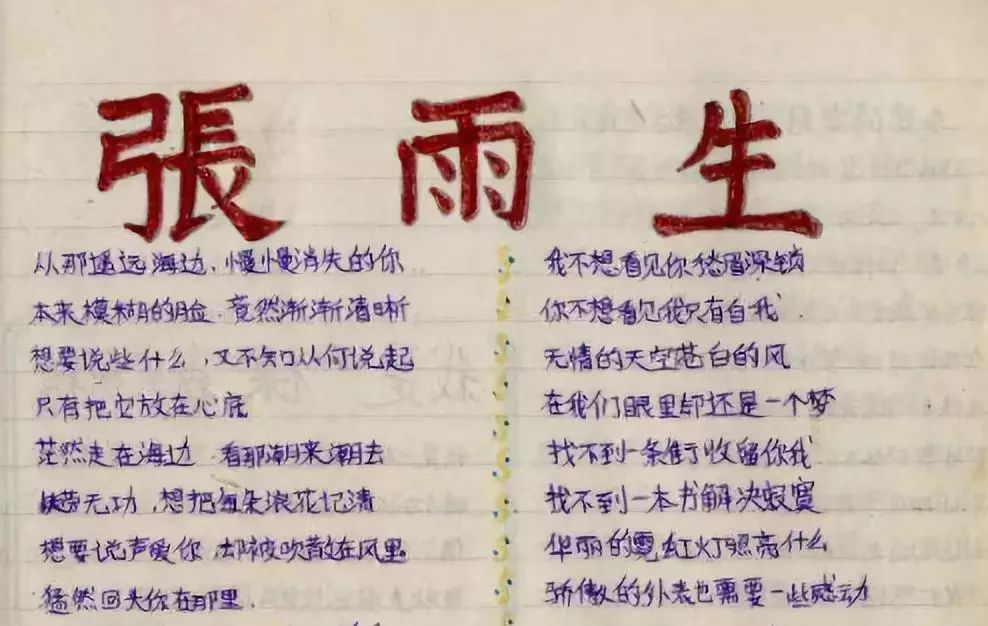 張雨生
从那遥远海边，慢慢消失的你
本来模糊的脸，竟然渐渐清晰
想要说些什么，又不知从何说起
只有把它放在心底
茫然走在海边 看那潮来潮去
徒劳无功，想把每朵浪花记清
想要说声爱你 却被吹散在风里
猛然回头你在那里.
我不想看见你愁眉深锁
你不想看见我只有自我.
无情的天空苍白的风
在我们眼里却还是一个梦
找不到一条街收留你我
找不到一本书解决寂寞
华丽的霓虹灯照亮什么
骄傲的外表也需要一些感动